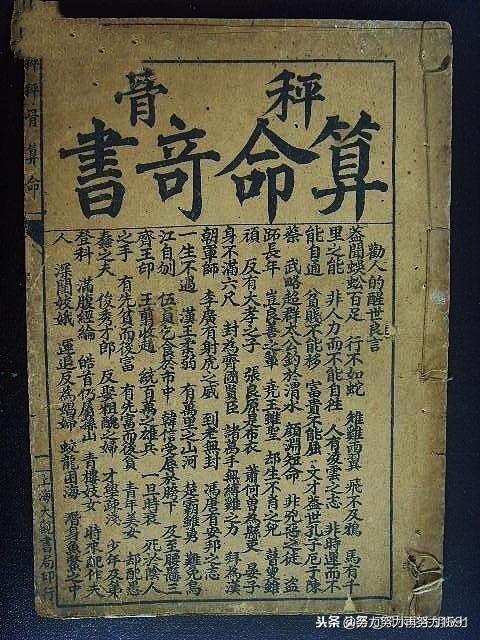 秤骨
算命竒書
勸人的醒世良言
蓋聞蜈蚣百足 行不如蛇 雄雞兩翼 飛不及鴉 馬有千
里之能 非人力而不能自往 人有凌雲之志 非時運而不
能自通 貧賤不能移 富貴不能屈 文才蓋世孔子厄于陳
蔡 武略超群太公釣於渭水 顏淵短命 非兇惡之徒 盜
跖長年 豈良善之輩 堯王雖聖 却生不肖之兒 瞽叟雖
頑 反有大孝之子 張良原是布衣 蕭何曾為縣吏 晏子
身不滿六尺 封為齊國賢臣 諸葛手無縛雞之力 拜為漢
朝軍師 李廣有射虎之威 到老無封 馮唐有安邦之志
一生不遇 漢王柔弱 有萬里之山河 楚霸雖勇 難免烏
江自刎 伍員乞食於市中 韓信受辱於胯下 及至腰懸三
齊王印 王翦收趙 統百萬之雄兵 一旦時衰 死於陰人
之手 有先貧而後富 有先富而後貧 青年美女 却配愚
蠢之夫 俊秀才郎 反娶粗醜之婦 才學淺 少年及第
登科 滿腹經綸 皓首仍居深山 青樓妓女 時來配作夫
人 深閨嫦娥 運退反為娼婦 蛟龍困海 潛身魚鱉之中
秤骨算命
上海大觀書局印行
头条号/努力努力再努力1591